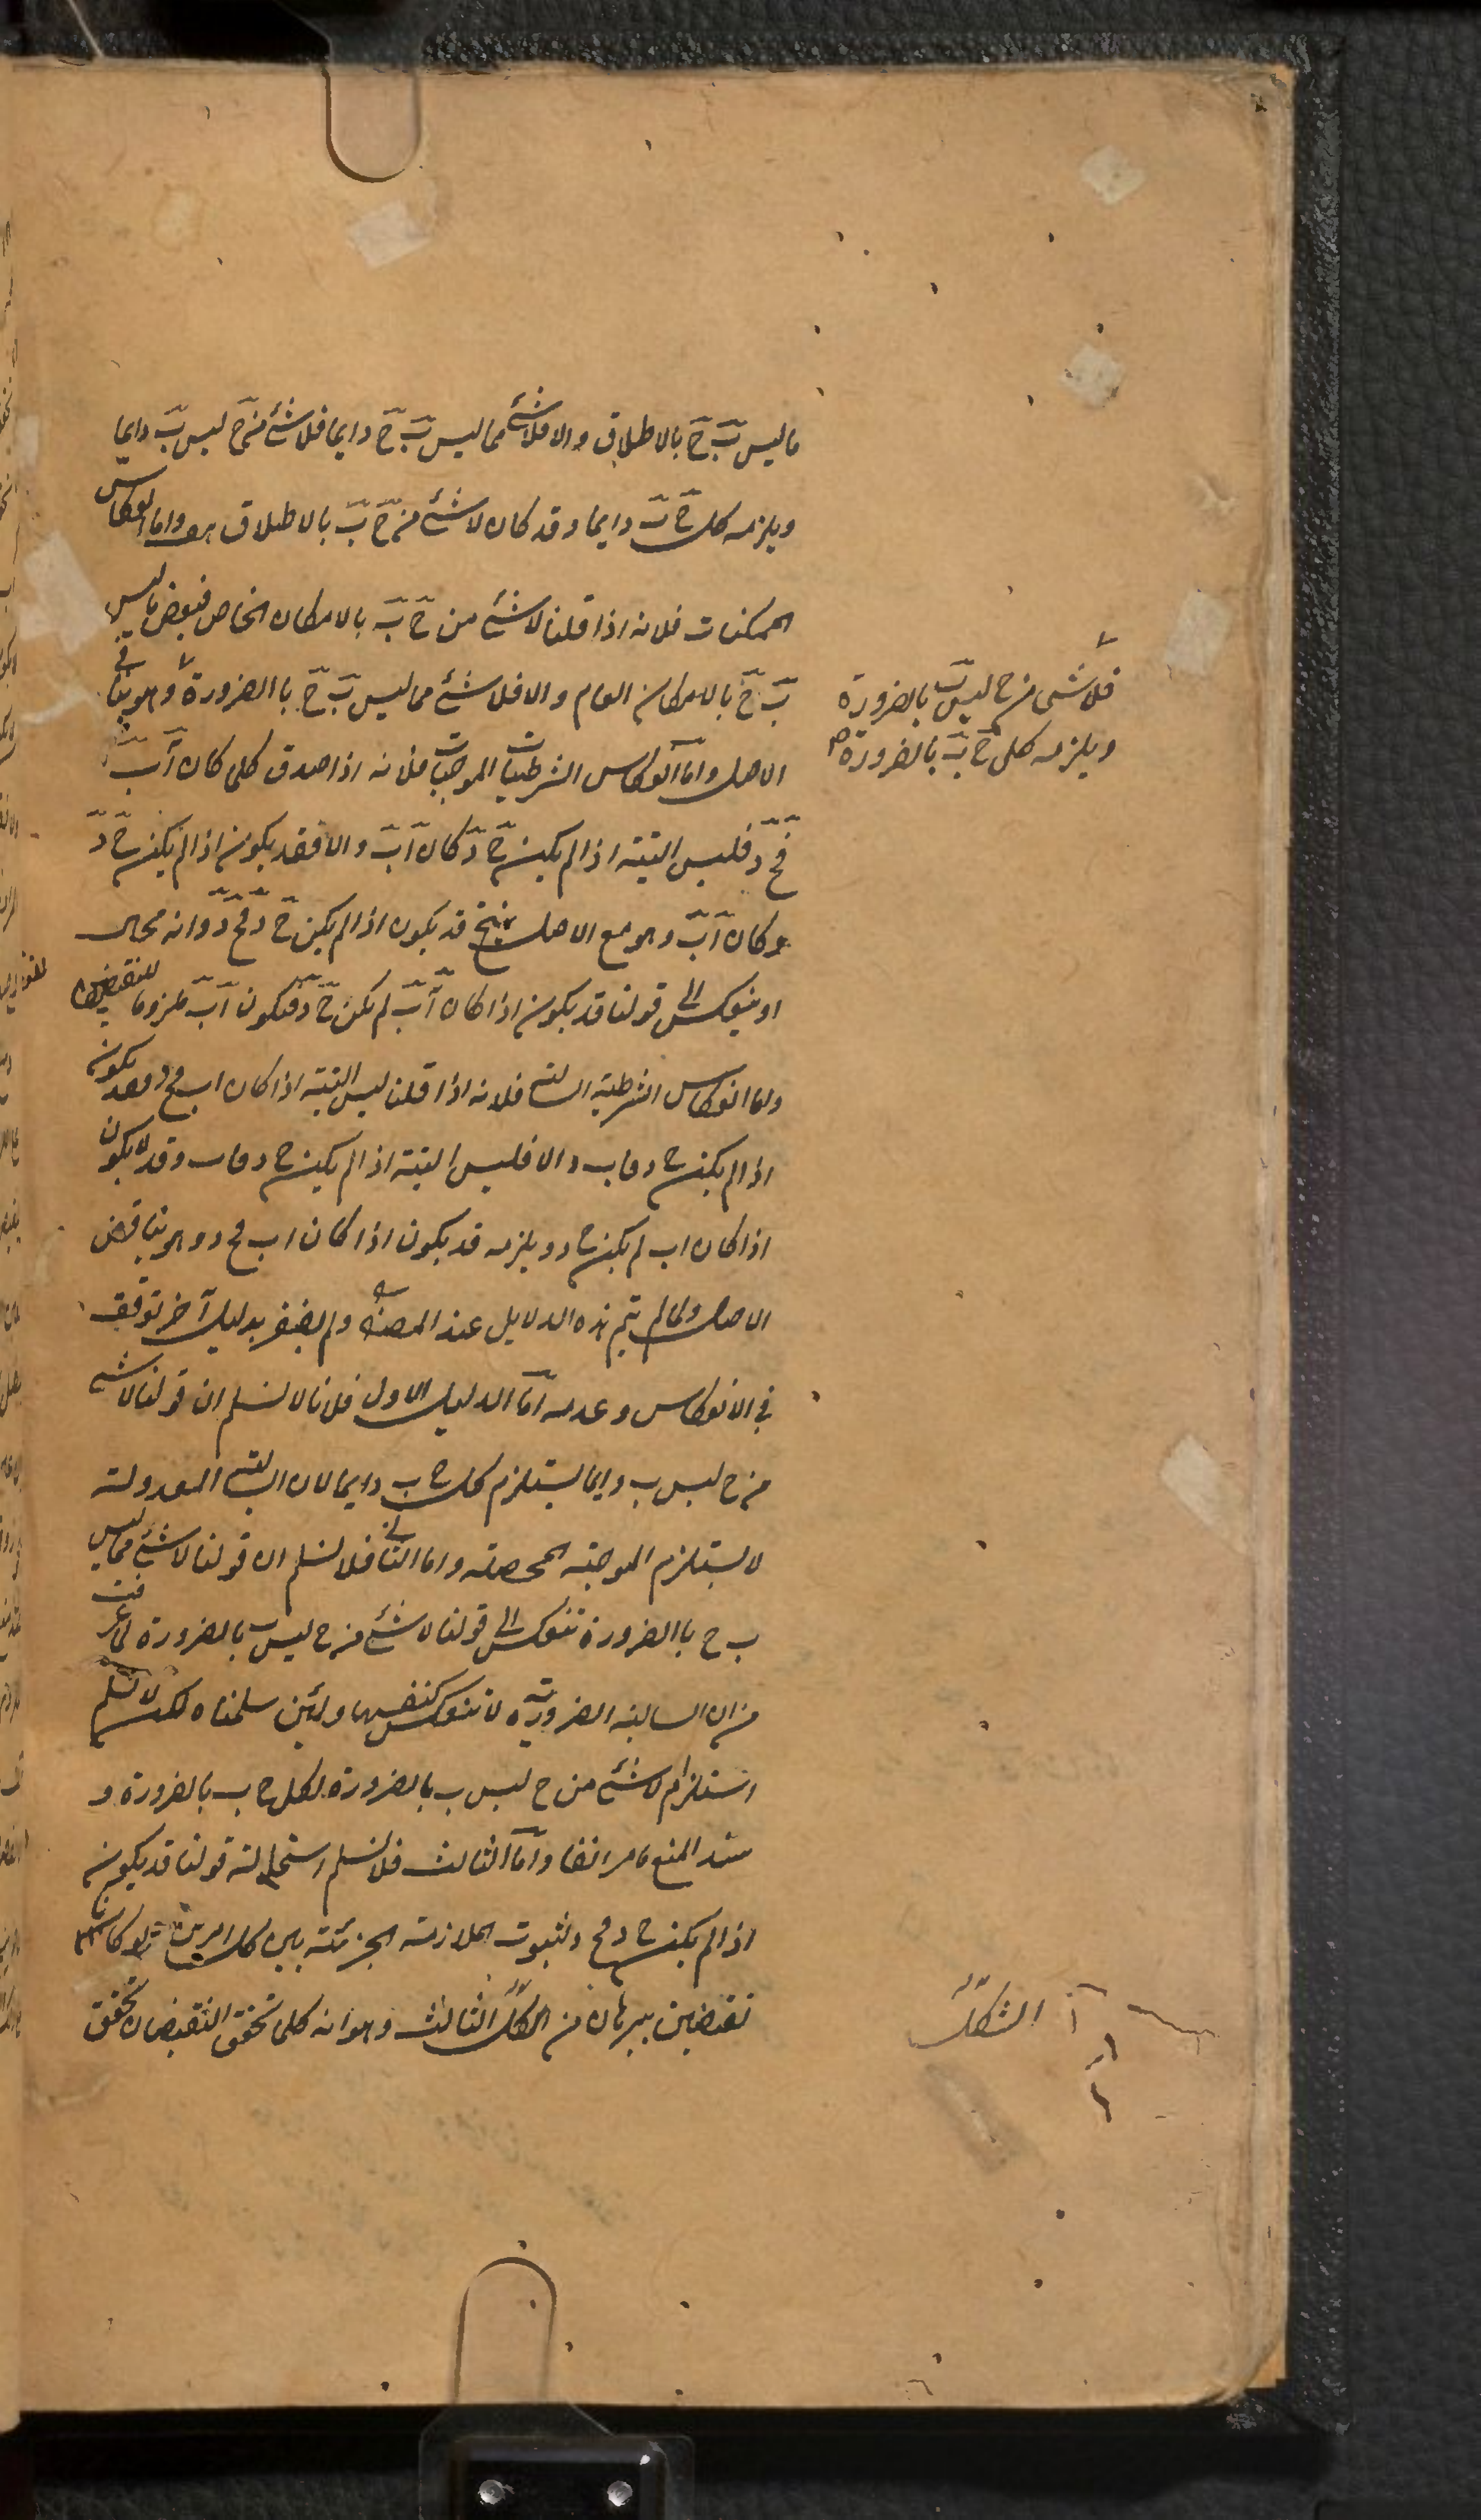 ما ليس بَ جَ بالاطلاق والا فلا شئ مما ليس بَ جَ دايما فلا شئ من جَ ليس بَ دايما
ويلزمه كل جَ بَ دايما وقد كان لا شئ من جَ بَ بالاطلاق هف واما انعكاس
الممكنات فلانه اذا قلنا لا شئ من جَ بَ بالامكان الخاص فبعض ما ليس
بَ جَ بالامكان العام والا فلا شئ مما ليس بَ جَ باالضرورة وهو ينافي
فلا شئ من ج ليس بَ بالضرورة
ويلزمه كل جَ بَ بالضرورة
الاصل واما انعكاس الشرطيات الموجبات فلانه اذا صدق كلما كان آبَ
فجَ دَ فليس البتة اذا لم يكن جَ دَ كان آبَ والا فقد يكون اذا لم يكن جَ دَ
وكان آبَ وهو مع الاصل ينتج قد يكون اذا لم يكن جَ دَ فجَ دَ وانه محال
او ينعكس الى قولنا قد يكون اذا كان آبَ لم يكن جَ دَ فيكون آبَ ملزوما للنقيضين
واما انعكاس الشرطية السالبة فلانه اذا قلنا ليس البتة اذا كان اب فج د فقد يكون
اذا لم يكن ج د فاب والا فليس البتة اذا لم يكن ج د فاب وقد لا يكون
اذا كان اب لم يكن ج د ويلزمه قد يكون اذا كان اب فج د وهو يناقض
الاصل ولما لم يتم هذه الدلايل عند المصنف ولم يظفر بدليل آخر توقف
في الانعكاس وعدمه اما الدليل الاول فلانا لا نسلم ان قولنا لا شئ
من ج ليس ب دايما يستلزم كل ج ب دايما لان السالبة المعدولة
لا يستلزم الموجبة المحصلة واما الثاني فلا نسلم ان قولنا لا شئ مما ليس
ب ج باالضرورة تنعكس الى قولنا لا شئ من ج ليس ب بالضرورة لما عرفت
من ان السالبة الضرورية لا تنعكس كنفسها ولئن سلمناه لكن لا نسلم
استلزام لا شئ من ج ليس ب بالضرورة لكل ج ب بالضرورة و
سند المنع ما مر انفا واما الثالث فلا نسلم استحالة قولنا قد يكون
اذا لم يكن ج د فج د لثبوت الملازمة الجزئية بين كل امرين ولو كانا
نقيضين ببرهان من الشكل الثالث وهو انه كلما تحقق النقيضان تحقق
الشكل